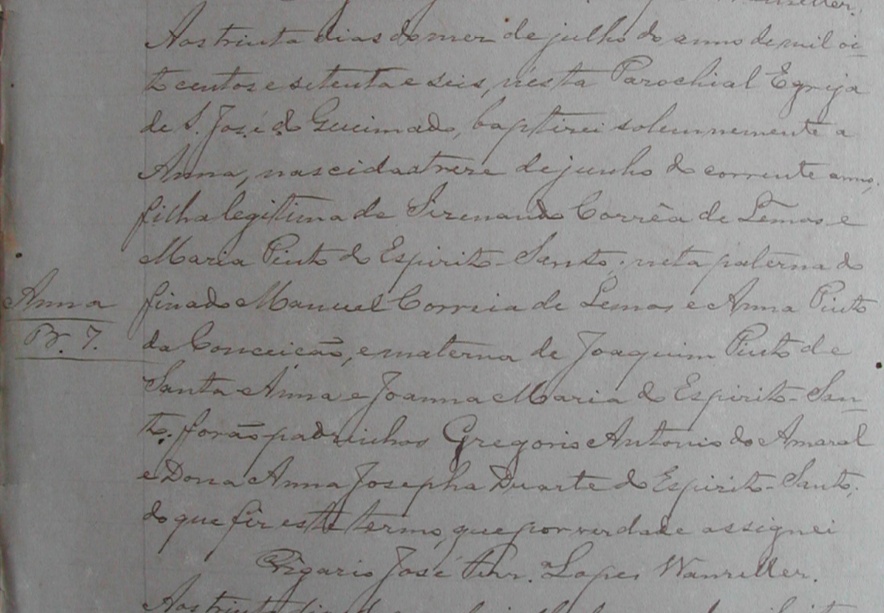 Wanzeller.
Aos trinta dias do mez de julho do anno de mil oi-
to centos e setenta e seis, nesta Parochial Egreja
de S. José do Gueimado, baptizei solemnemente a
Anna, nascida a treze de junho do corrente anno,
filha legitima de Sizenando Corrêa de Lemos e
Maria Pinto do Espirito-Santo; neta paterna do
finado Manuel Correia de Lemos e Anna Pinto
da Conceicão, e materna de Joaquim Pinto de
Santa Anna e Joanna Maria do Espirito-San-
to. forão padrinhos Gregorio Antonio do Amaral
e Dona Anna Josepha Duarte do Espirito-Santo;
do que fiz este termo, que por verdade assignei
Vigario José Pinr.ª Lopes Wanzeller.
Anna
Br. 7.
Aos trinta dias do